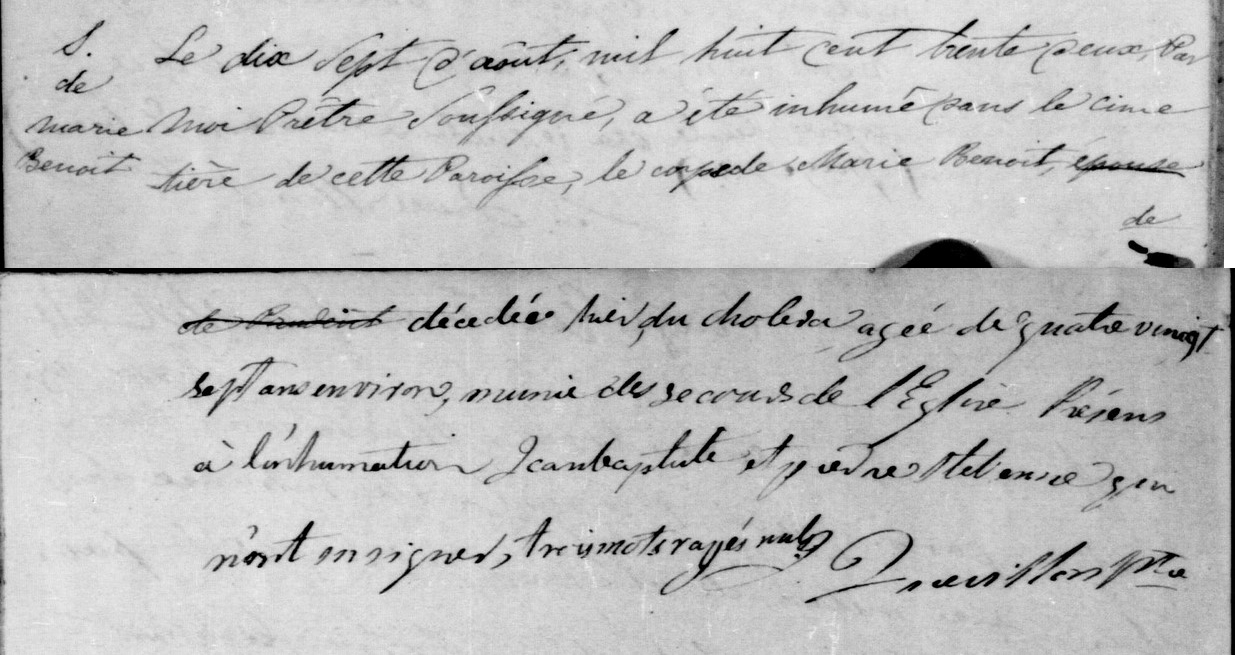 S.
de
marie
Benoit
Le dix Sept d'août, mil huit cent trente deux, Par
moi Prêtre Soussigné, a été inhumé dans le cime
tière de cette Paroisse, le corps de Marie Benoit, épouse
de
de décédée hier, du cholera agée de quatre vingt
sept ans environ, munie des secours de l'Eglise. Présens
à l'inhumation Jean baptiste et pierre qui
n'ont su signer, trois mots rayés nuls
Ptre